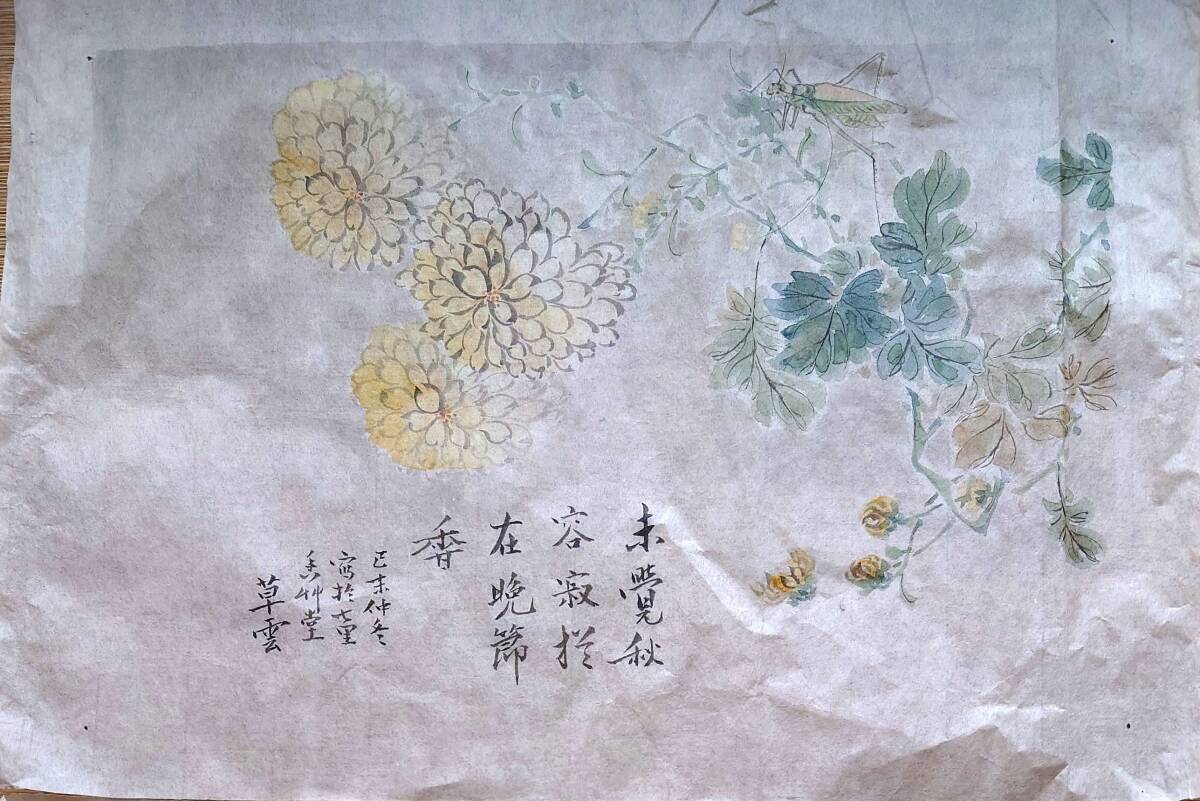 未覺秋
容寂
在晚節
香
己未仲冬
寫於七里
香艸堂
草雲